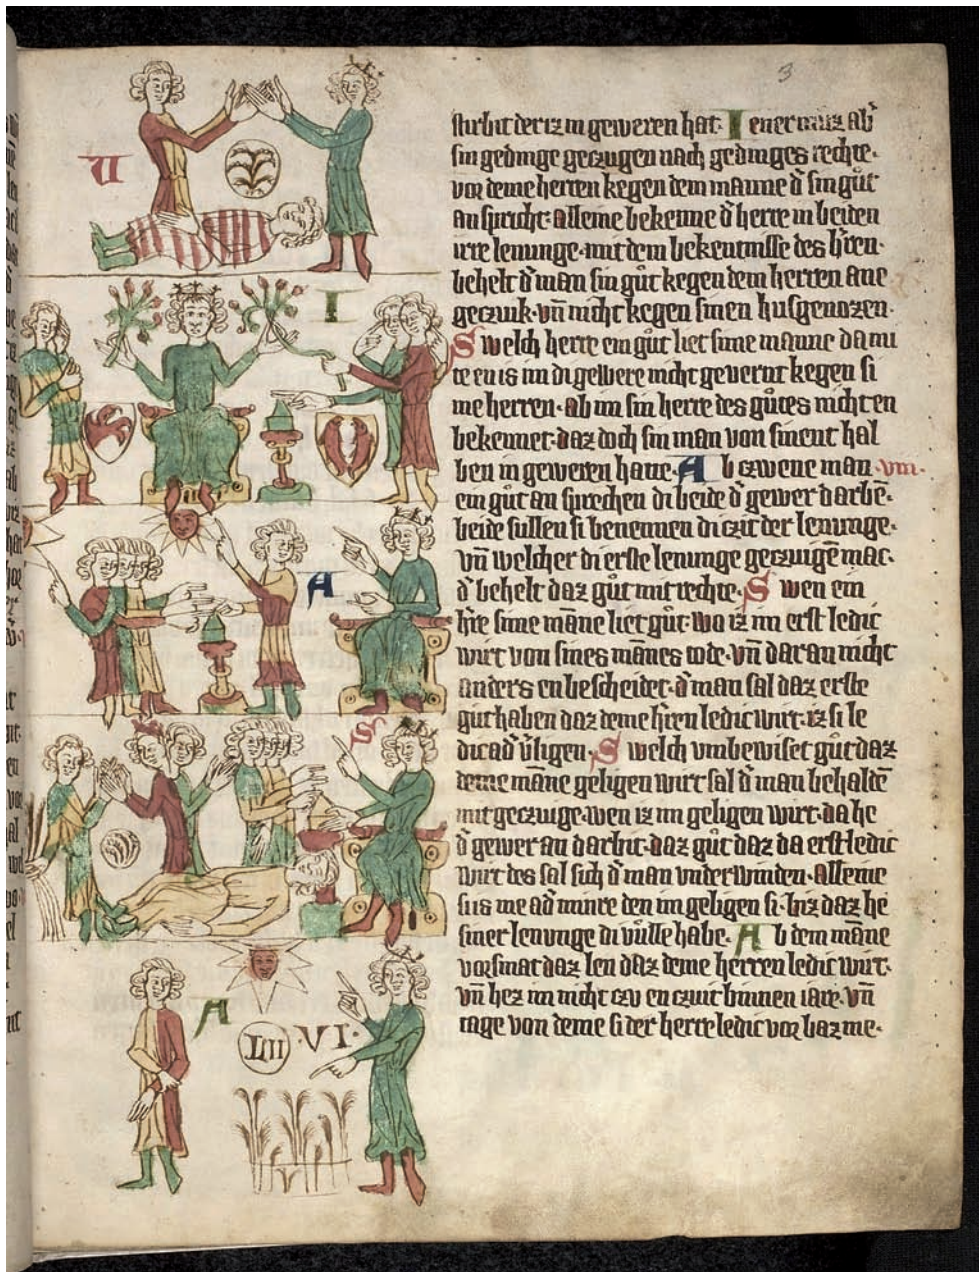 3
stirbit der iz in geweren hat. Iener muz ab᷎
sin gedinge geczugen nach gedinges rechte.
vor deme herren kegen dem manne d᷎ sin gůt
an spricht. alleine bekenne d᷎ herre in beiden
irre lenunge. mit dem bekentnisse des h᷎ren.
behelt d᷎ man sin gůt kegen dem herren ane
geczuk. vn̄ nicht kegen sinen husgenozen.
Swelch herre ein gůt liet sime manne da mi
te en is im di gewere nicht gevernt kegen si
me herren. ab im sin herre des gůtes nicht en
bekennet. daz doch sin man von sinent hal
ben in geweren hatte. Ab czwene man vm.
ein gůt an sprechen di beide d᷎ gewer darbē.
beide sullen si benennen di czit der lenunge.
vn̄ welcher di erste lenunge geczuigē mac.
d᷎ behelt daz gůt mit rechte. Swen ein
h᷎re sime māne liet gůt wo iz im erst ledic
wirt von sines mānes tode. vn̄ dar an nicht
anders en bescheidet. d᷎ man sal daz erste
gut haben daz deme h᷎ren ledic wirt. iz si le
dic ad᷎ v᷎ligen. Swelch vmbewiset gůt daz
deme māne geligen wirt sal d᷎ man behaldē
mit geczuige. wen iz im geligen wirt. da he
d᷎ gewer an darbit. daz gůt daz da erst ledic
wirt des sal sich d᷎ man vnderwinden. Alleine
sus me ad᷎ minre den im geligen si. biz daz he
siner lenunge di vůlle habe. Ab dem māne
vorsmat daz len daz deme herren ledic wirt.
vn̄ hez im nicht czu en czuit binnen iare. vn̄
tage von deme si der herre ledic vor baz me.
U
I
A
S
A
LII VI